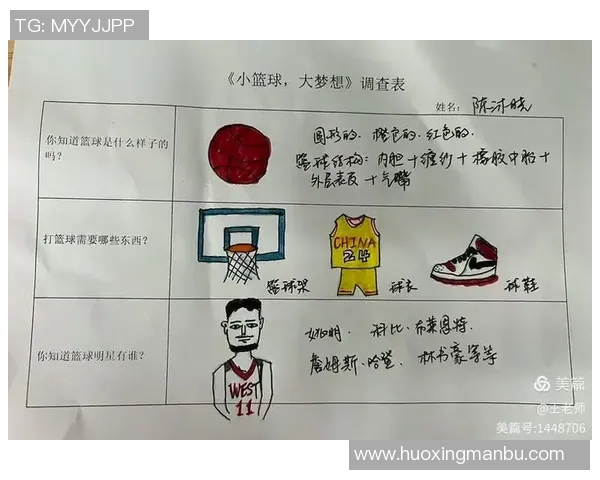 TG: MYYJJPP
《小篮球，大梦想》调查表
姓名：陈沐晓
你知道篮球是什么样子的吗？
圆形的．橙色的．红色的．
篮球结构：内胆＋缠纱＋橡胶中胎＋
外层表皮＋气嘴
打篮球需要哪些东西？
CHINA
24
篮球架
球衣
球鞋
你知道篮球明星有谁？
WEST
11
姚明．科比．布莱恩特．
詹姆斯．哈登．林书豪等等
美篇
@王老师
美篇号:1448706
www.huoxingmanbu.com